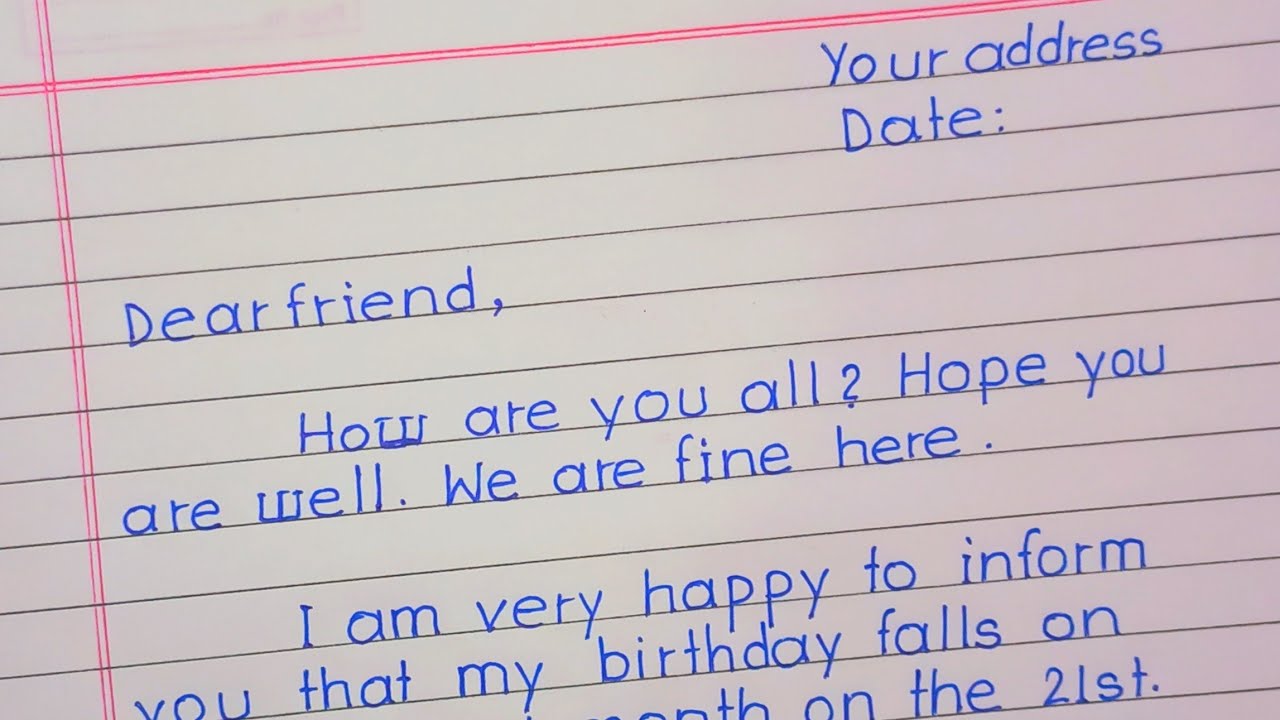 Your address
Date:
Dear friend,
How are you all? Hope you
are well. We are fine here.
I am very happy to inform
you that my birthday falls on
on the 21st.